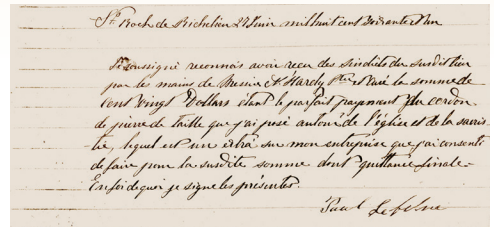 St Roch de Richelieu 27 Juin mil huit cent soixante et un
Je soussigné reconnais avoir reçu des sindics du susdit lieu
par les mains de Messire Hardy Ptre et Curé la somme de
Cent vingt Dollars étant le parfait payement du cordon
de pierre de taille que j'ai posé autour de l'église et de la sacris
tie, lequel est un extra sur mon entreprise que j'ai consenti
de faire pour la susdite somme dont quittance finale-
En foi de quoi je signe les présentes.
Paul Lefebvre